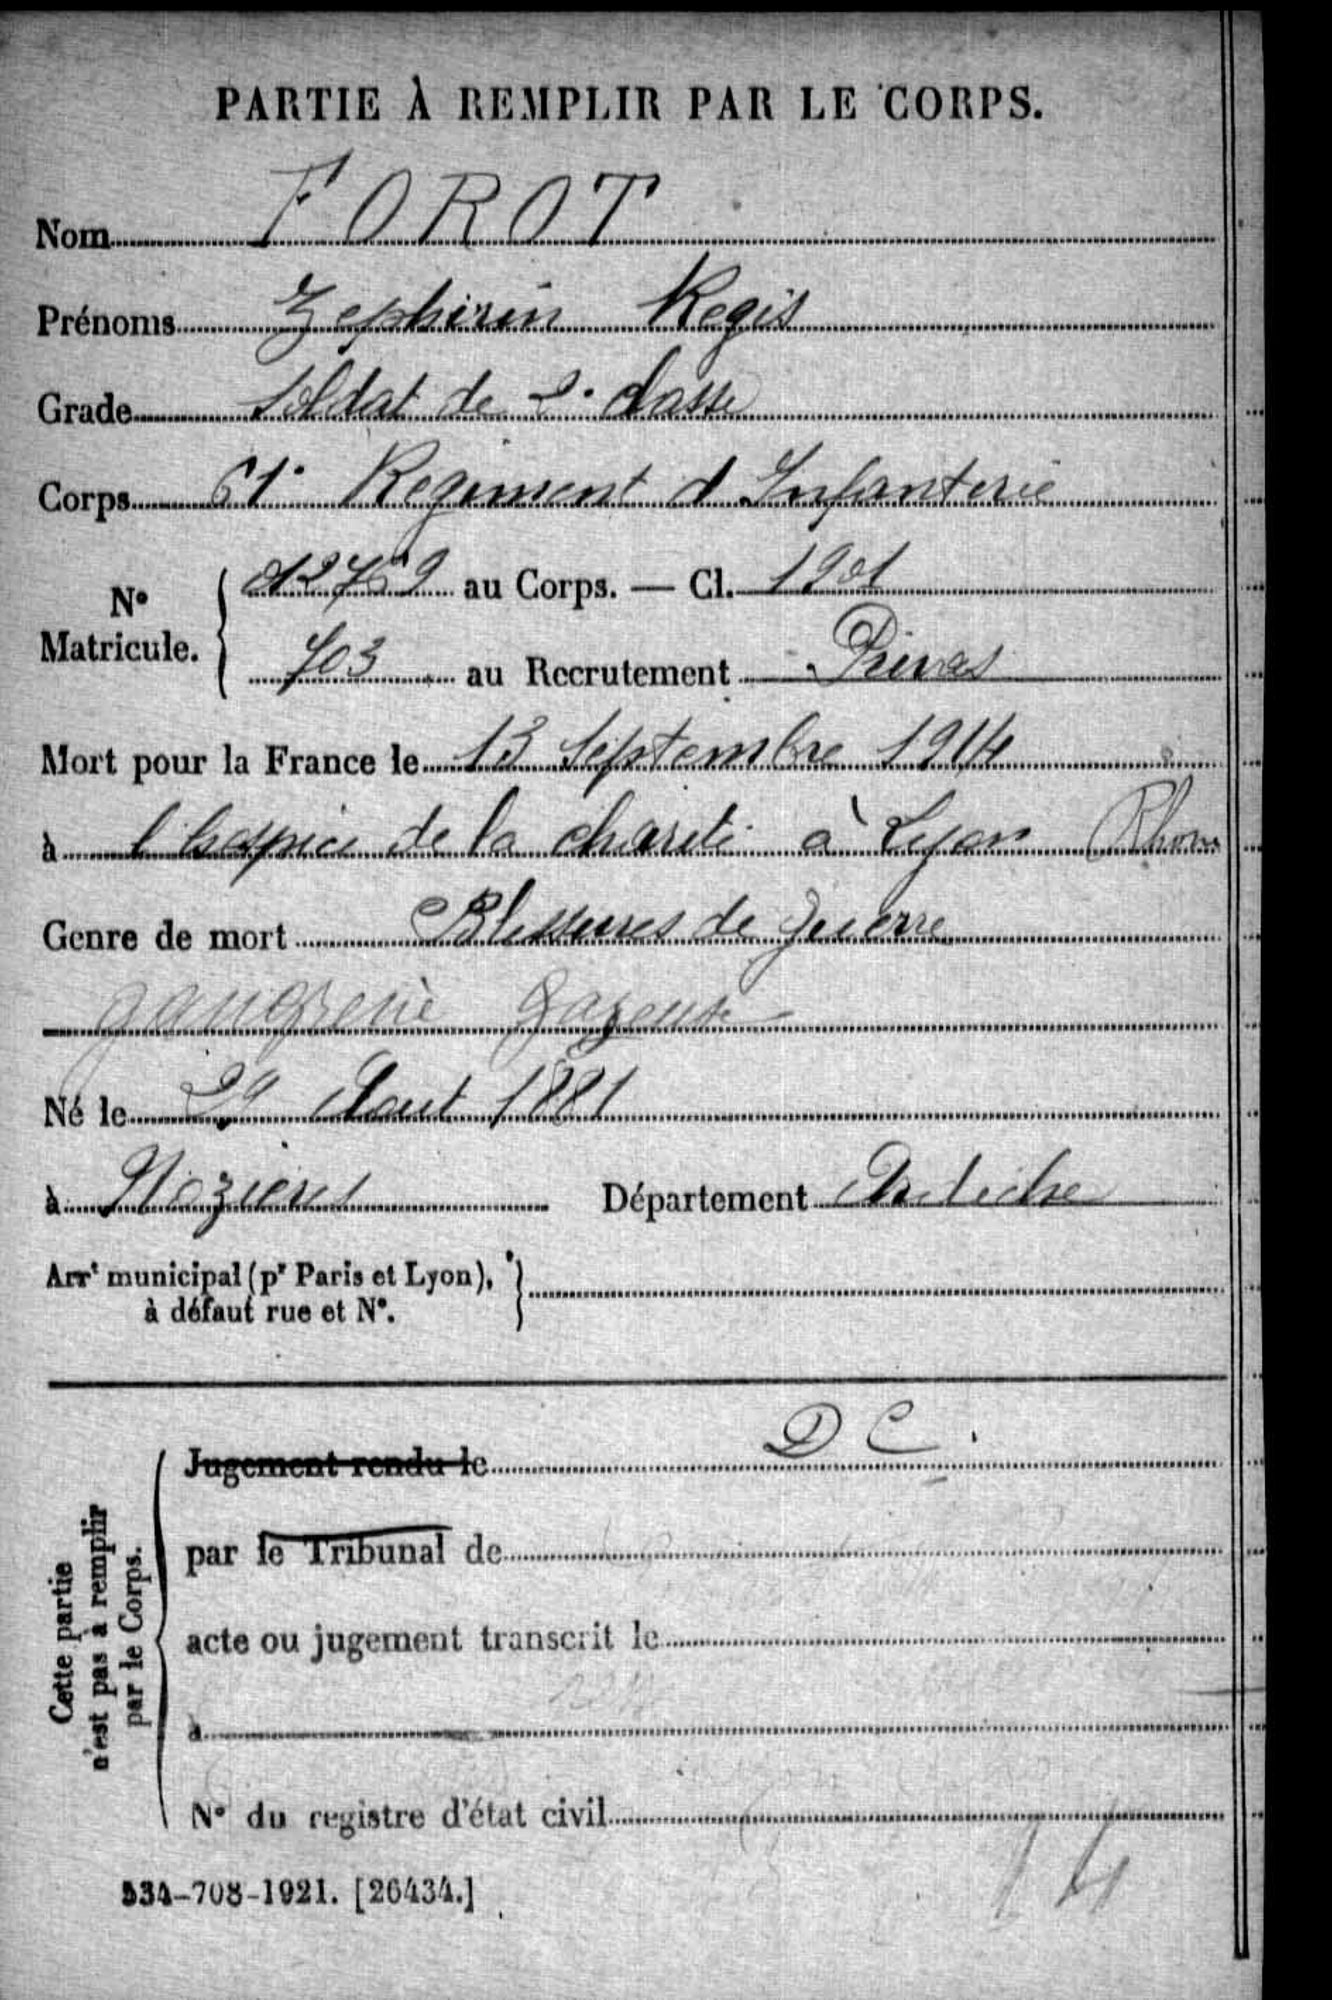 PARTIE À REMPLIR PAR LE CORPS.
Nom FOROT
Prénoms Zephirin Regis
Grade Soldat de 2e classe
Corps 61e Regiment d Infanterie
No Matricule. 012769 au Corps. — Cl. 1901
703 au Recrutement Privas
Mort pour la France le 13 Septembre 1914
à l'hospice de la charité à Lyon Rhone
Genre de mort Blessures de guerre
gangrene gazeuse
Né le 29 Aout 1881
à Nozieres Département Ardèche
Arrt municipal (pr Paris et Lyon),
à défaut rue et No.
Cette partie
n'est pas à remplir
par le Corps.
Jugement rendu le D C.
par le Tribunal de
acte ou jugement transcrit le
à
No du registre d'état civil
14
534-708-1921. [26434.]